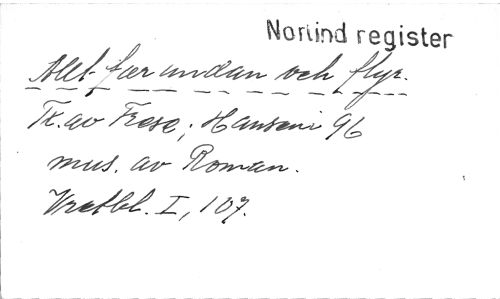 Norlind register
Allt far undan och flyr.
Tx. av Frese; Hanseni 96
mus. av Roman.
Vretbl. I, 107.